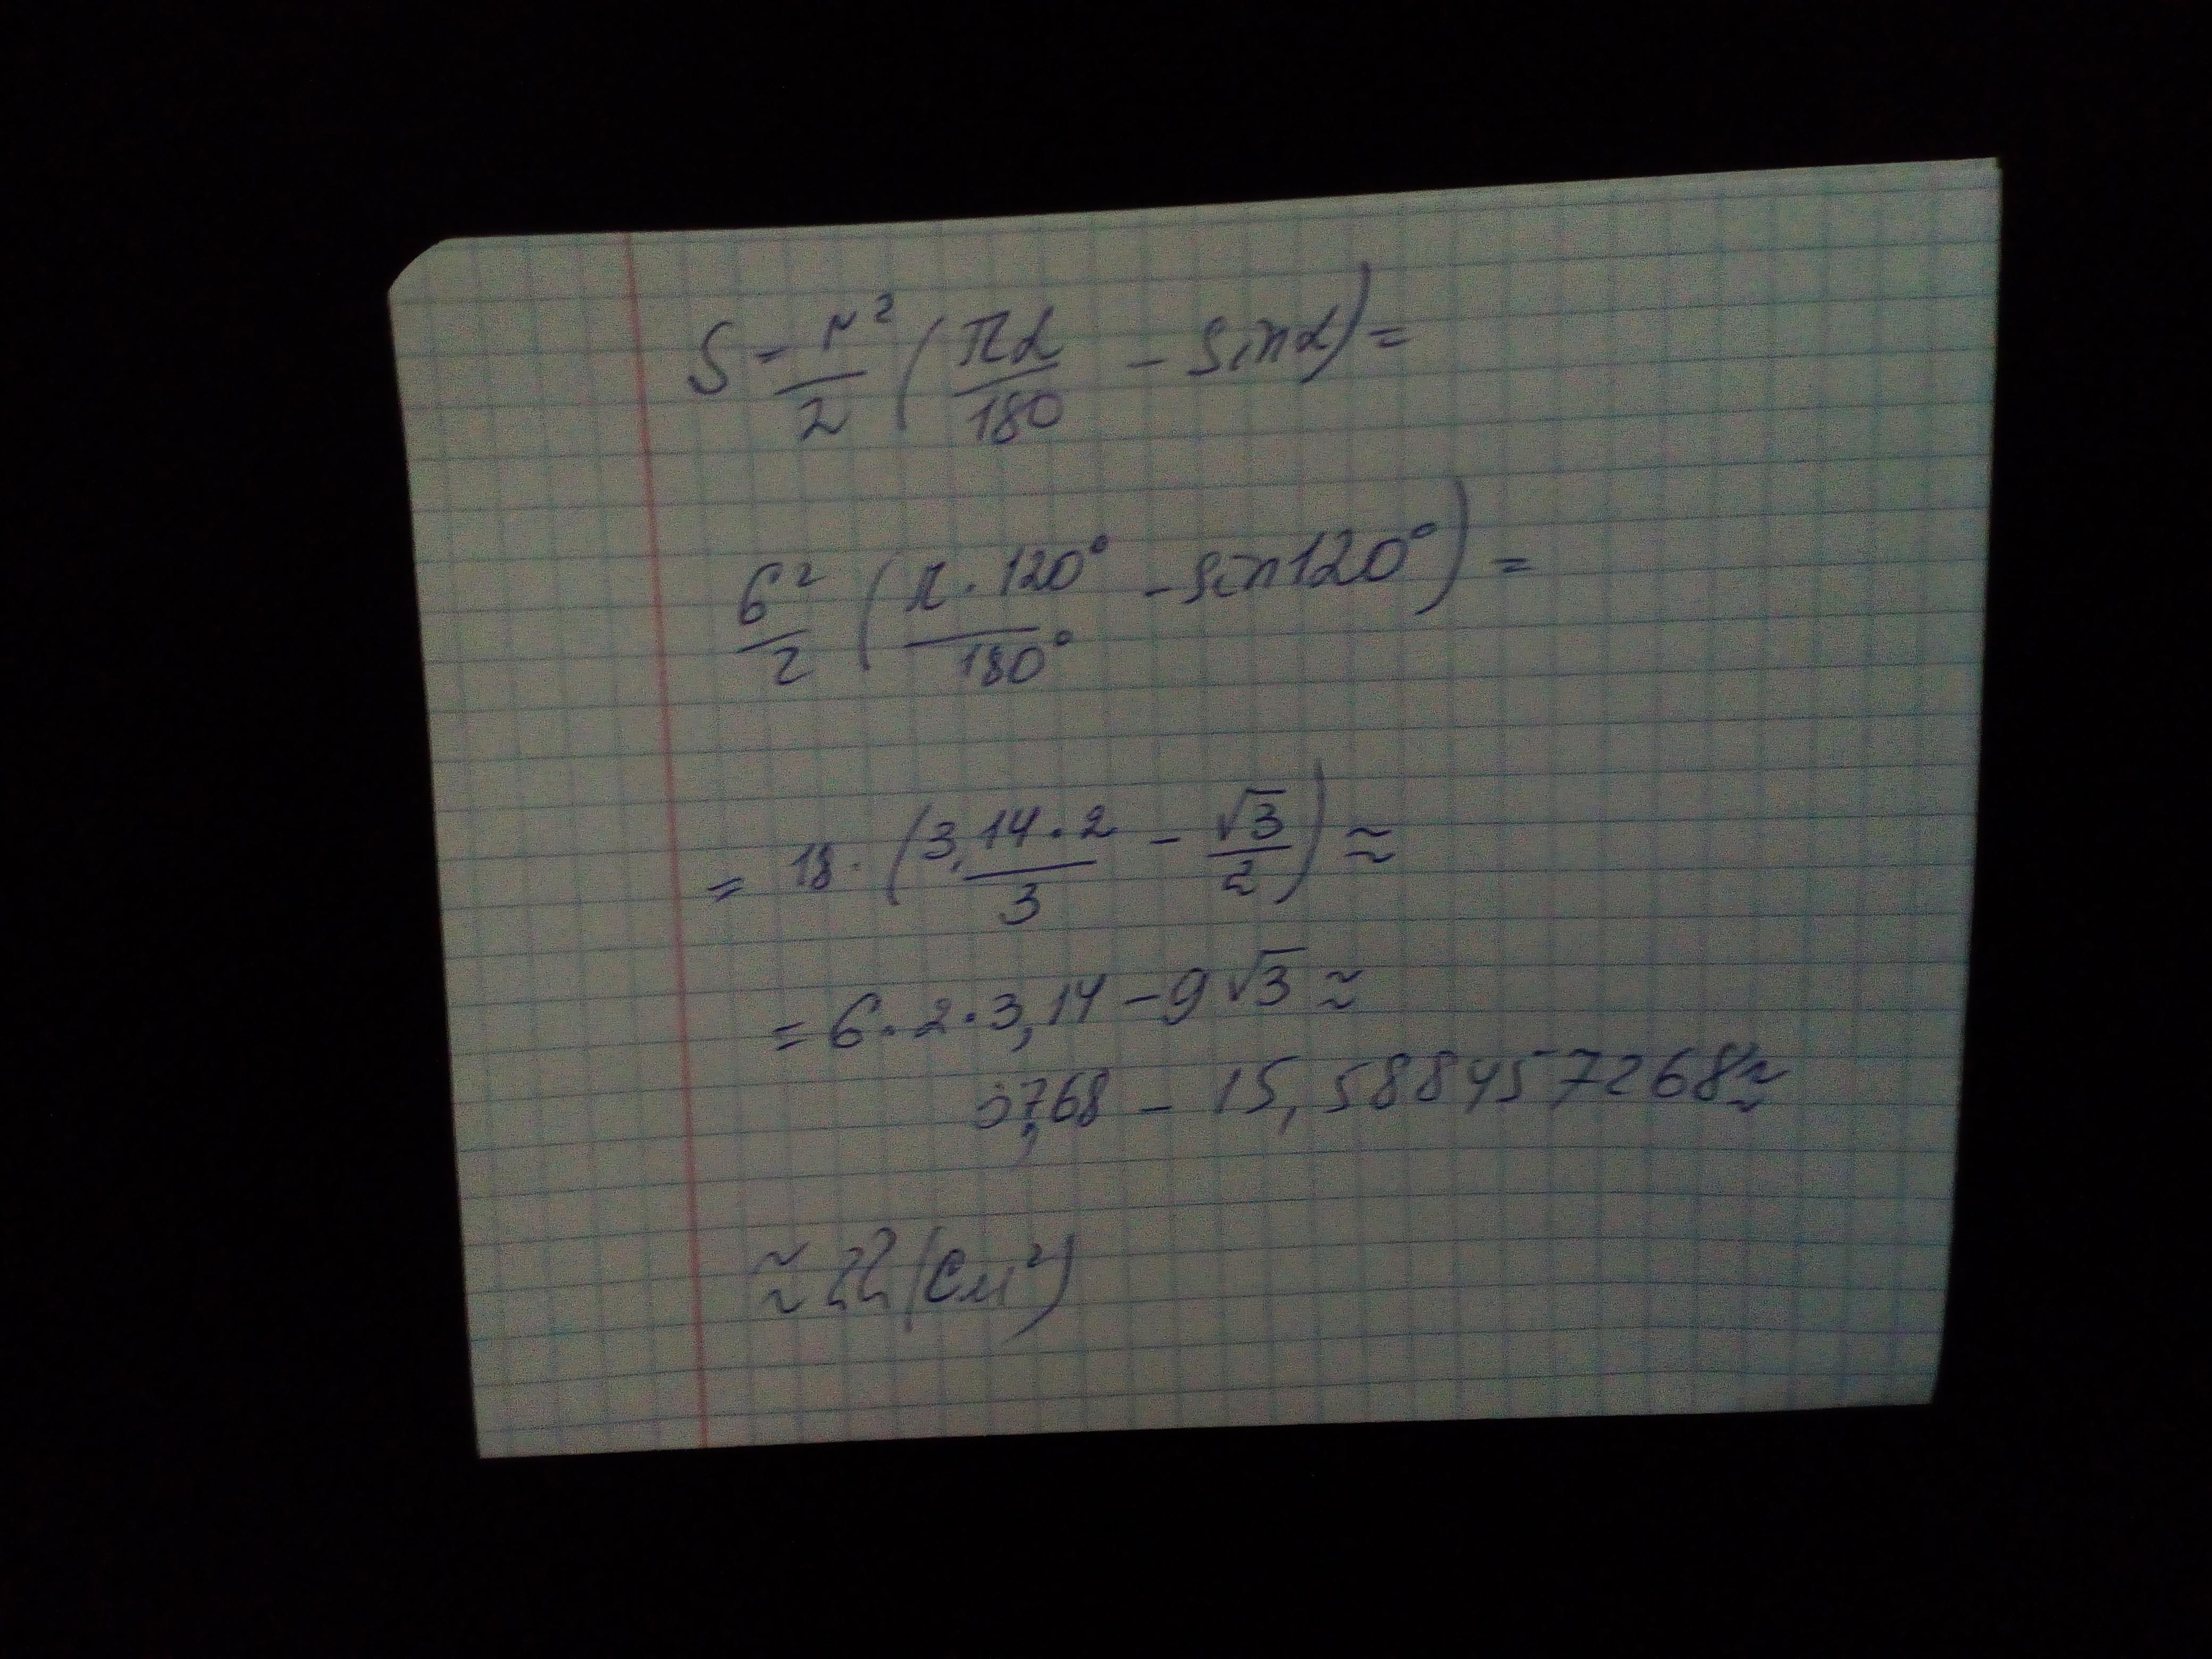 S = r²/2 (πα/180 - sinα) =
6²/2 (π · 120°/180° - sin120°) =
= 18 · (3,14 · 2/3 - √3/2) ≈
= 6 · 2 · 3,14 - 9√3 ≈
37,68 - 15,588457268 ≈
≈ 22 (см²)